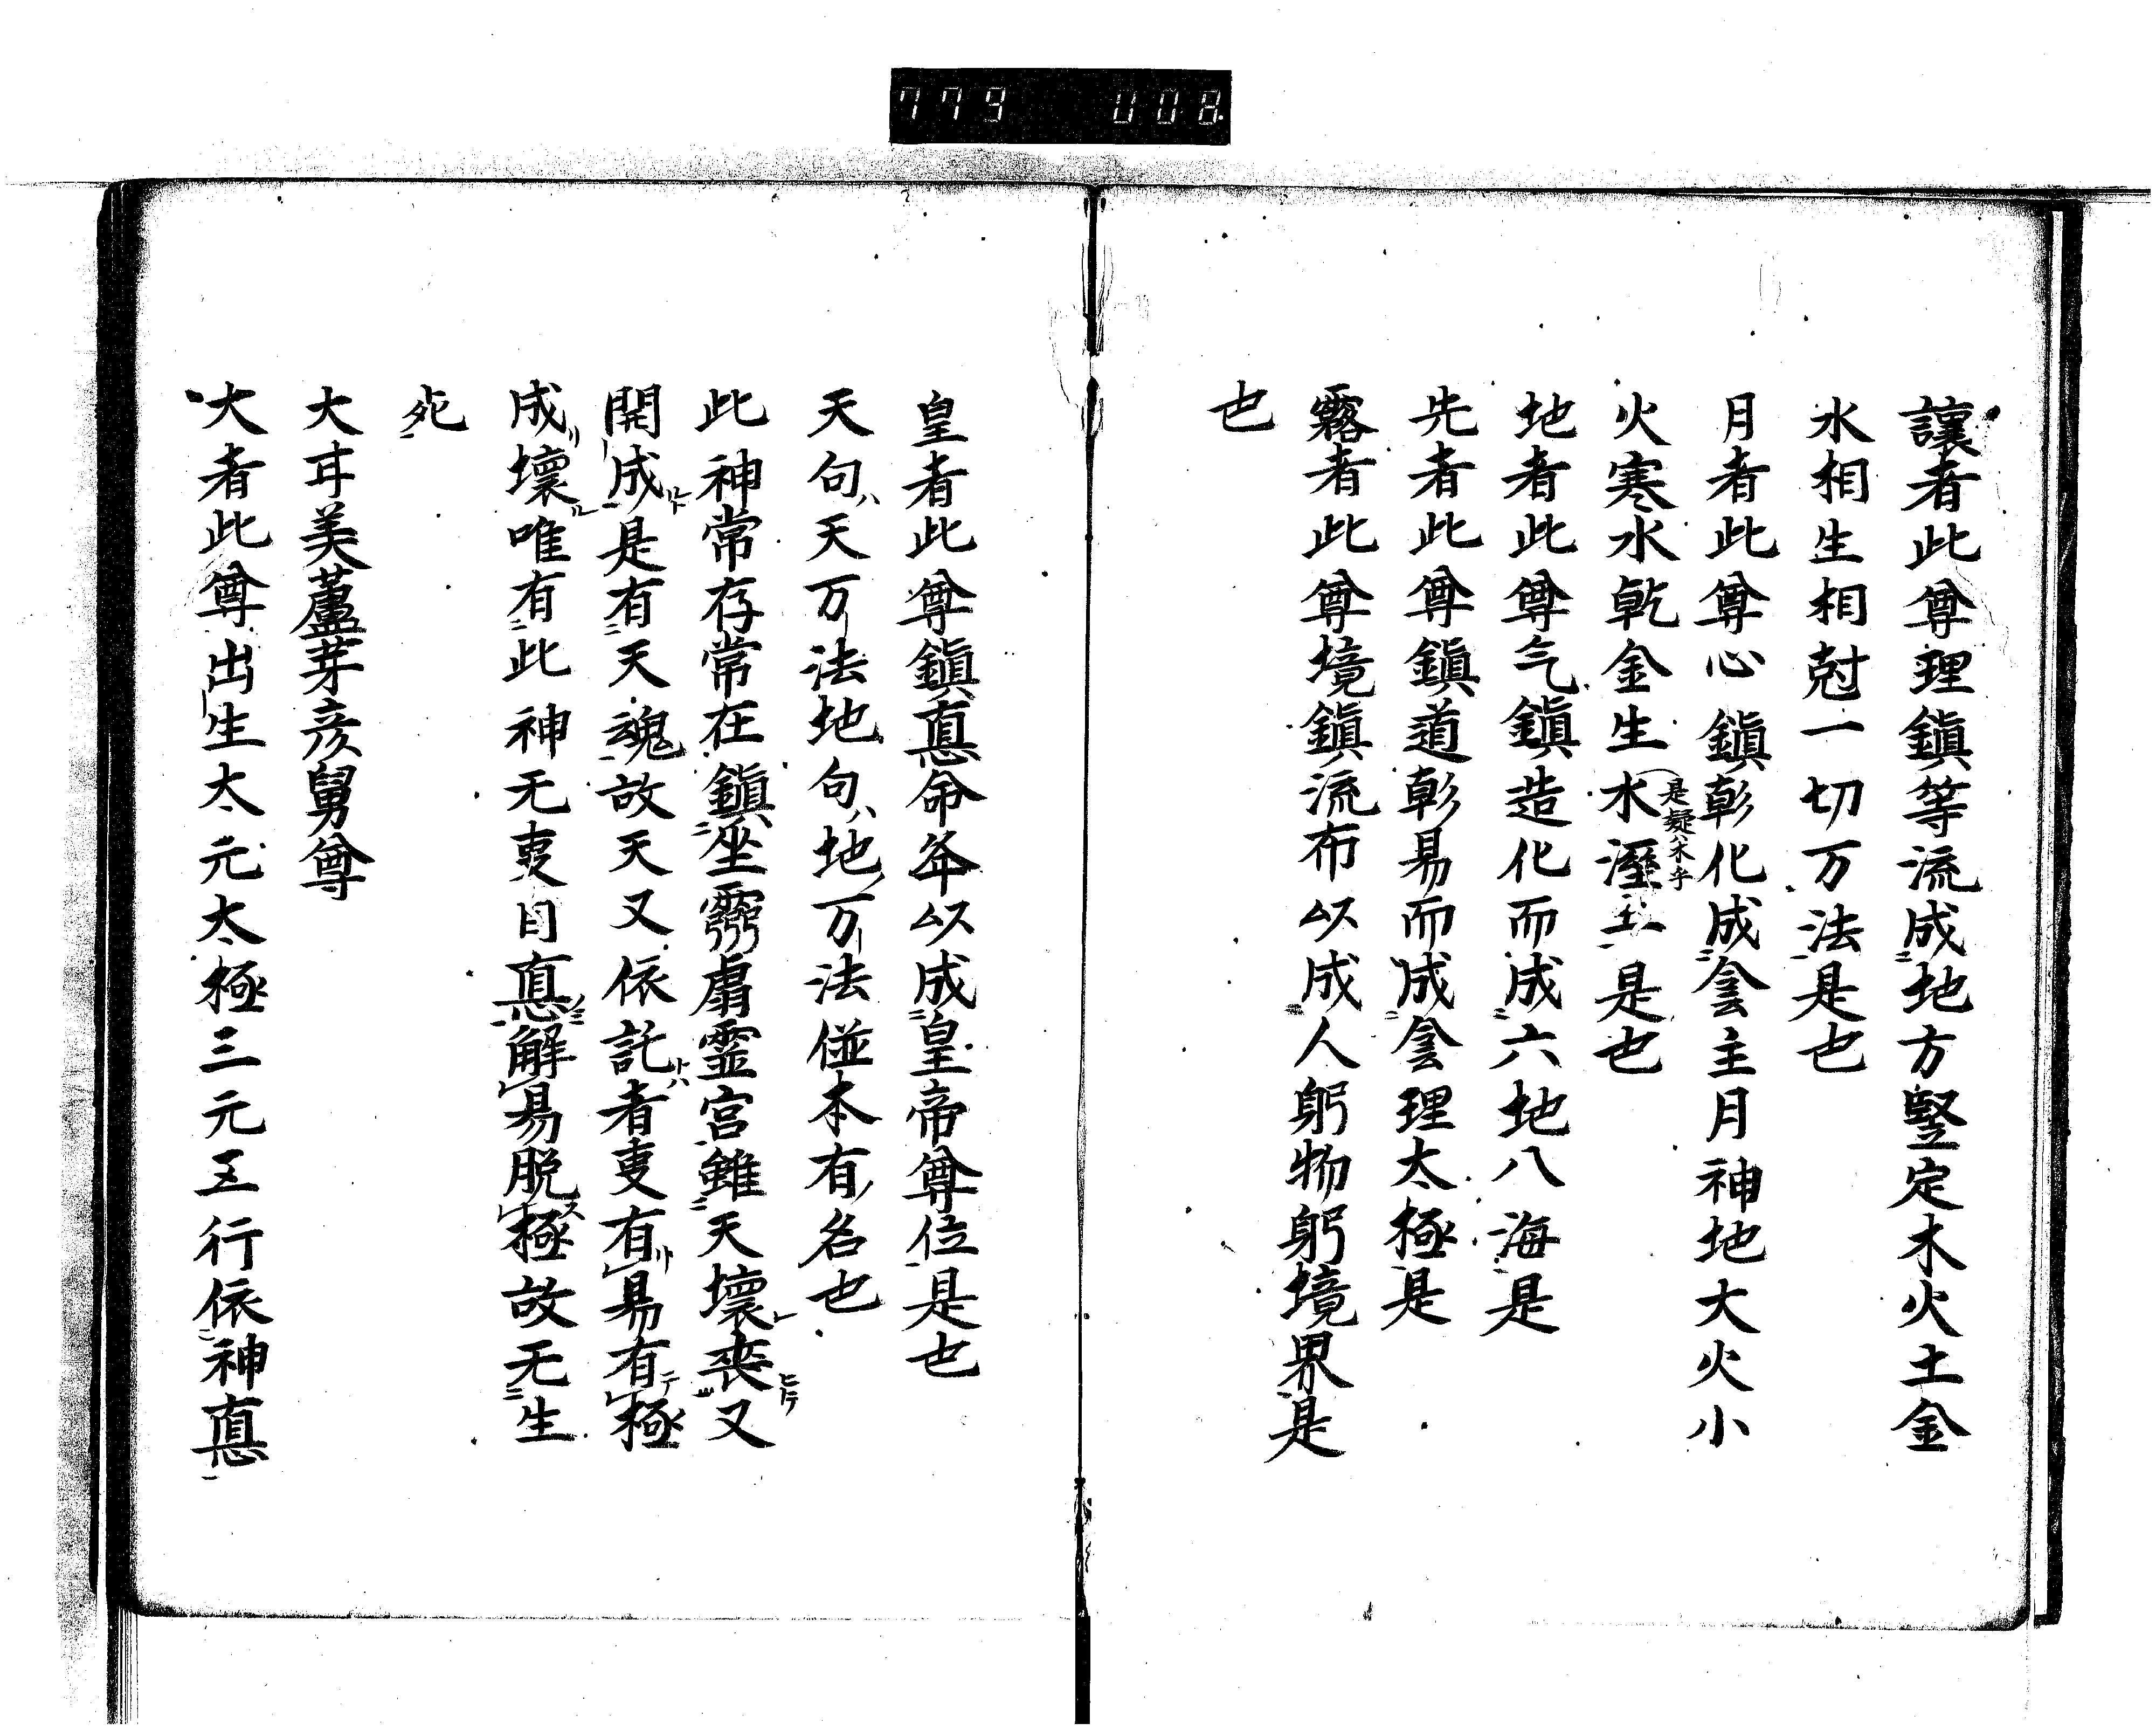 779 008
讓者此尊理鎮等流成地方竪定木火土金
水相生相尅一切万法是也
月者此尊心鎮彰化成侌主月神地大火小
火寒水乾金生水溼土是也
是疑木乎
地者此尊气鎮造化而成六地八海是
先者此尊鎮道彰易而成侌理太極是
露者此尊境鎮流布以成人躬物躬境界是
也
皇者此尊鎮悳命年以成皇帝尊位是也
天句ハ天万法地句ハ地万法並本有ノ名也
此神常存常在鎮坐靈宮雖天壞喪又
開成是有天魂故天又依託者叓有易有極
成壞唯有此神无叓目悳解易脱極故无生
死
大耳美蘆芽彦舅尊
大者此尊出生太元太極三元五行依神悳